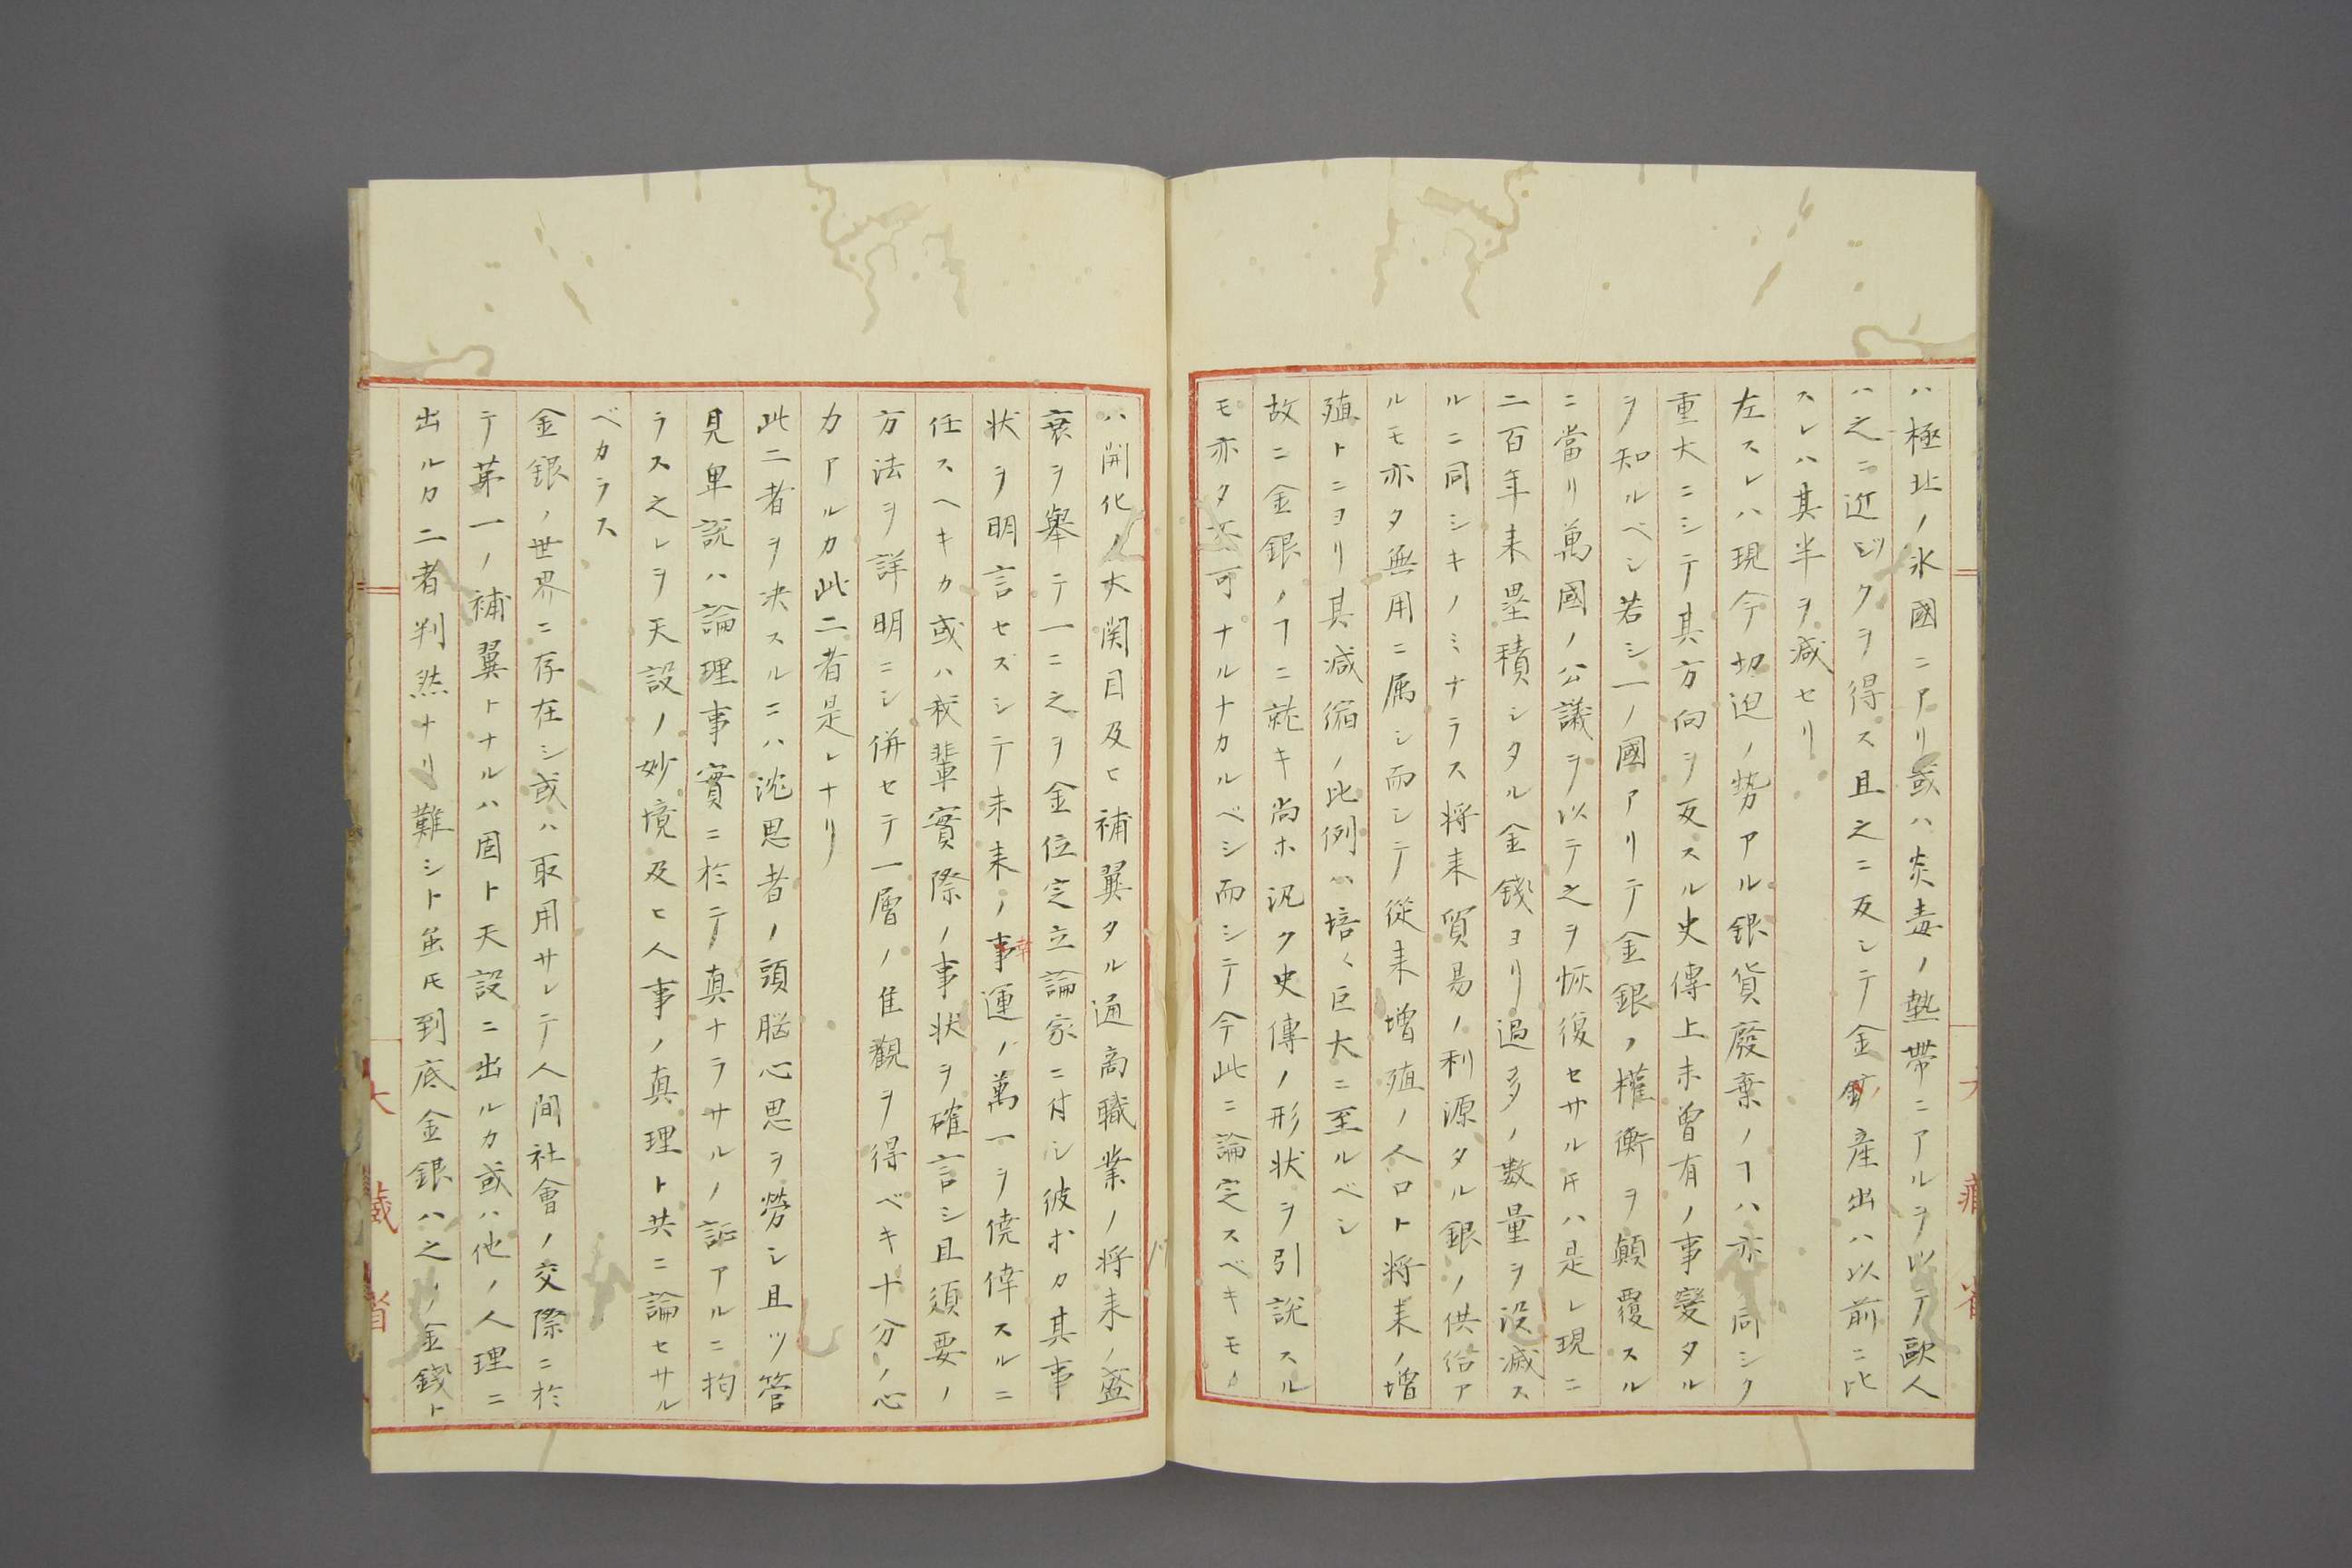 ハ極北ノ氷國ニアリ或ハ炎毒ノ熱帶ニアルヲ以テ歐人
ハ之ニ近ヅクヲ得ス且之ニ反シテ金鉱産出ハ以前ニ比
スレハ其半ヲ減セリ
左スレハ現今切迫ノ勢アル銀貨廢棄ノヿハ亦同シク
重大ニシテ其方向ヲ反スル史傳上未曽有ノ事變タル
ヲ知ルベシ若シ一ノ國アリテ金銀ノ權衡ヲ顛覆スル
ニ當リ萬國ノ公議ヲ以テ之ヲ恢復セサル𪜈ハ是レ現ニ
二百年来壘積シタル金錢ヨリ過多ノ數量ヲ没滅ス
ルニ同シキノミナラス将来貿易ノ利源タル銀ノ供給ア
ルモ亦タ無用ニ属シ而シテ從来增殖ノ人口ト将来ノ増
殖トニヨリ其減縮ノ比例ハ培々巨大ニ至ルベシ
故ニ金銀ノヿニ就キ尚ホ汎ク史傳ノ形状ヲ引説スル
モ亦タ不可ナルナカルベシ而シテ今此ニ論定スベキモノ
ハ開化ノ大関目及ヒ補翼タル通商職業ノ将来ノ盛
衰ヲ擧テ一ニ之ヲ金位定立論家ニ付シ彼ホカ其事
状ヲ明言セズシテ未来ノ事運ノ萬一ヲ僥倖スルニ
任スヘキカ或ハ我輩實際ノ事状ヲ確言シ且須要ノ
方法ヲ詳明ニシ併セテ一層ノ佳觀ヲ得ベキ十分ノ心
カアルカ此二者是レナリ
此二者ヲ決スルニハ沈思者ノ頭脳心思ヲ勞シ且ツ管
見卑説ハ論理事實ニ於テ真ナラサルノ証アルニ拘
ラス之レヲ天設ノ妙境及ヒ人事ノ真理ト共ニ論セサル
ベカラス
金銀ノ世界ニ存在シ或ハ取用サレテ人間社會ノ交際ニ於
テ苐一ノ補翼トナルハ固ト天設ニ出ルカ或ハ他ノ人理ニ
出ルカ二者判然ナリ難シト虽𪜈到底金銀ハ之ノ金錢ト
大藏省